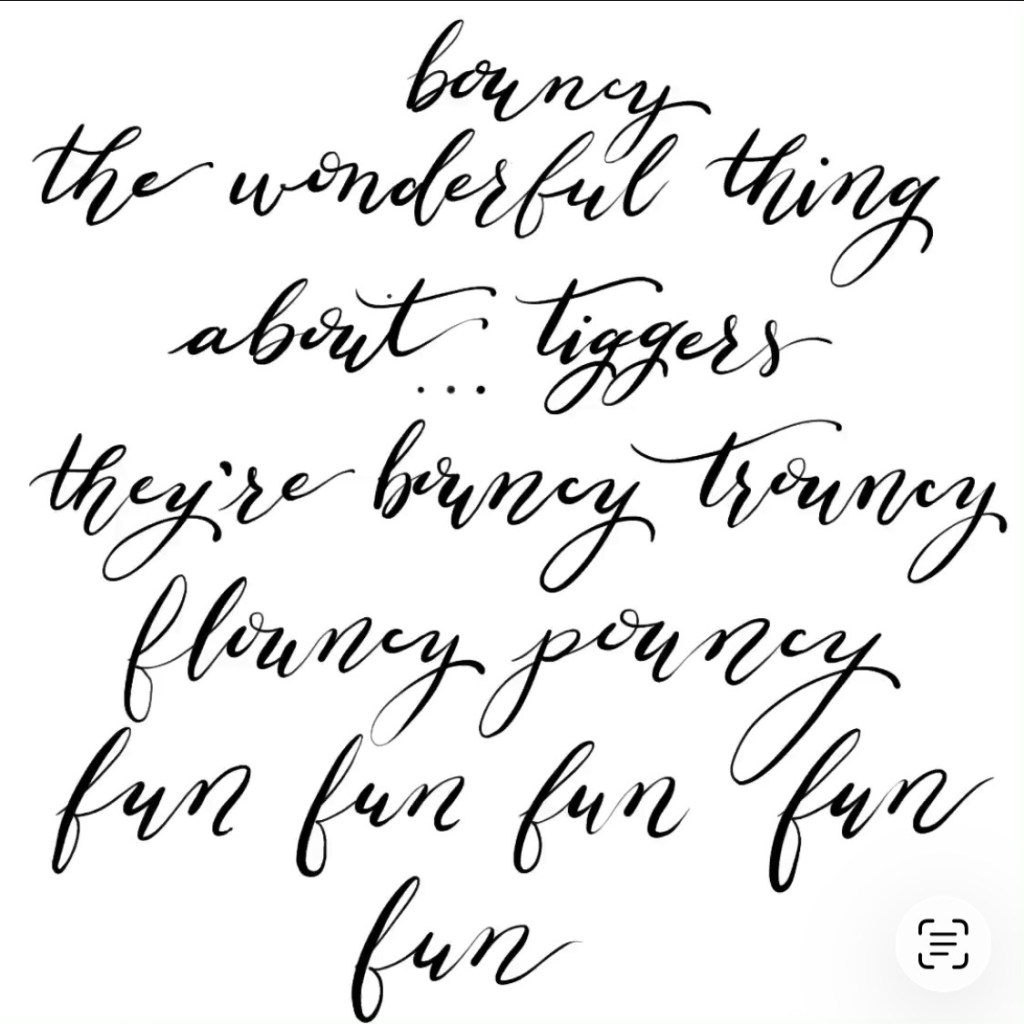 bouncy
the wonderful thing
about tiggers
...
they're bouncy trouncy
flouncy pouncy
fun fun fun fun
fun